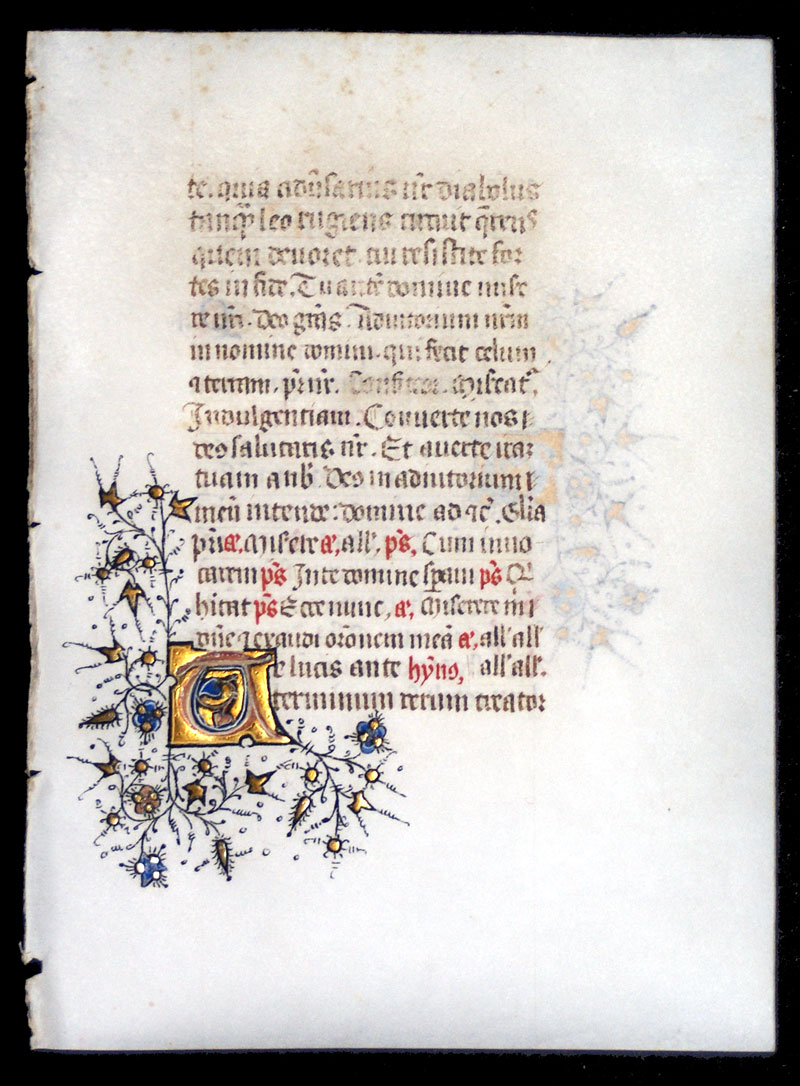 te. quia adūsarius nr̄ diabolus
tanqȝ leo rugiens circuit q̄rens
quem deuoret. cui resistite for
tes in fide. Tu autē domine mise
re nr̄i. Deo grās. Adiutorium nr̄m
in nomine domini. qui fecit celum
⁊ terram. pr̄ nr̄. Confiteor. Misereat᷑.
Indulgentiam. Conuerte nos
deo salutaris nr̄. Et auerte irā
tuam a nb̄. Deo in adiutorium
meū intende. domine ad ⁊c̄. Glīa
pr̄i. æ. Miserere, æ, all', ps̄, Cum inuo
carem ps̄ In te domine sperāui ps̄ Qī
hitat ps̄ Ecce nunc, æ, Miserere mī
dn̄e ⁊ exaudi orōnem meā æ, all' all'
Te lucis ante hȳno, all' all'.
terminum rerum creator